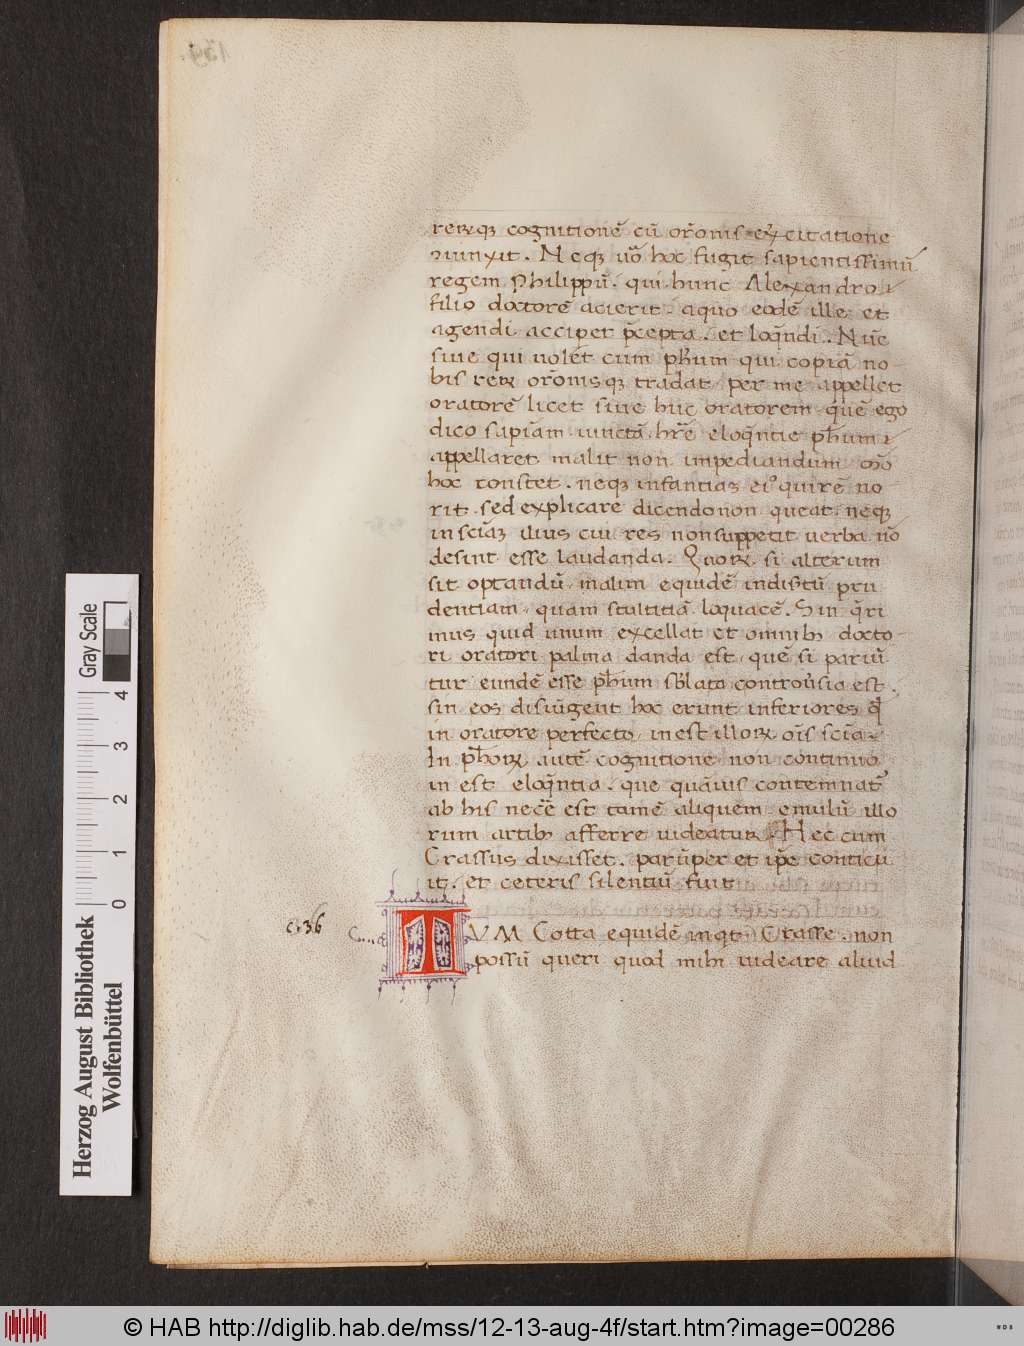 rerꝝqꝫ cognitionē cū orōnis exercitatione
iunxit. Neqꝫ uō hoc fugit sapientissimū
regem Philippū. qui hunc Alexandro
filio doctorē acierit. aquo eodē ille et
agendi acciper p̄cepta. et loq̄ndi. Nūc
siue qui uolet cum ph̄um qui copiā no
bis rerꝝ orōnisqꝫ tradat per me appellet
oratorē licet siue hūc oratorem quē ego
dico sapiām iunctā hr̄e eloq̄ntie ph̄um
appellaret malit non impediandum mō
hoc constet. neqꝫ infantiaꝫ eiꝰ qui rē no
rit. sed explicare dicendo non queat. neqꝫ
insciāꝫ illius cui res non suppetit uerba nō
desint esse laudanda. Quorꝝ si alterum
sit optandū malim equidē indisertū pru
dentiam quam stultitiā loquacē. Sin q̄ri
mus quid unum excellat et omnibꝫ docto
ri oratori palma danda est quē si pariū
tur eundē esse ph̄um sb̄lata controūsia est.
sin eos disiūgent hoc erunt inferiores qđ
in oratore perfecto inest illorꝝ oīs sciā
In ph̄orꝝ autē cognitione non continuo
in est eloq̄ntia. que quāuis contemnat᷑
ab his necē̄ est tamē aliquem emulū illo
rum artibꝫ afferre uideatur Hec cum
Crassus dixisset. parūper et ip̄e conticu
it. et ceteris silentiū fuit
c. 36
TVM Cotta equidē inqt Crasse. non
possū queri quod mihi uideare aliud
139.
Herzog August Bibliothek
Wolfenbüttel
0 1 2 3 4
Gray Scale
© HAB http://diglib.hab.de/mss/12-13-aug-4f/start.htm?image=00286